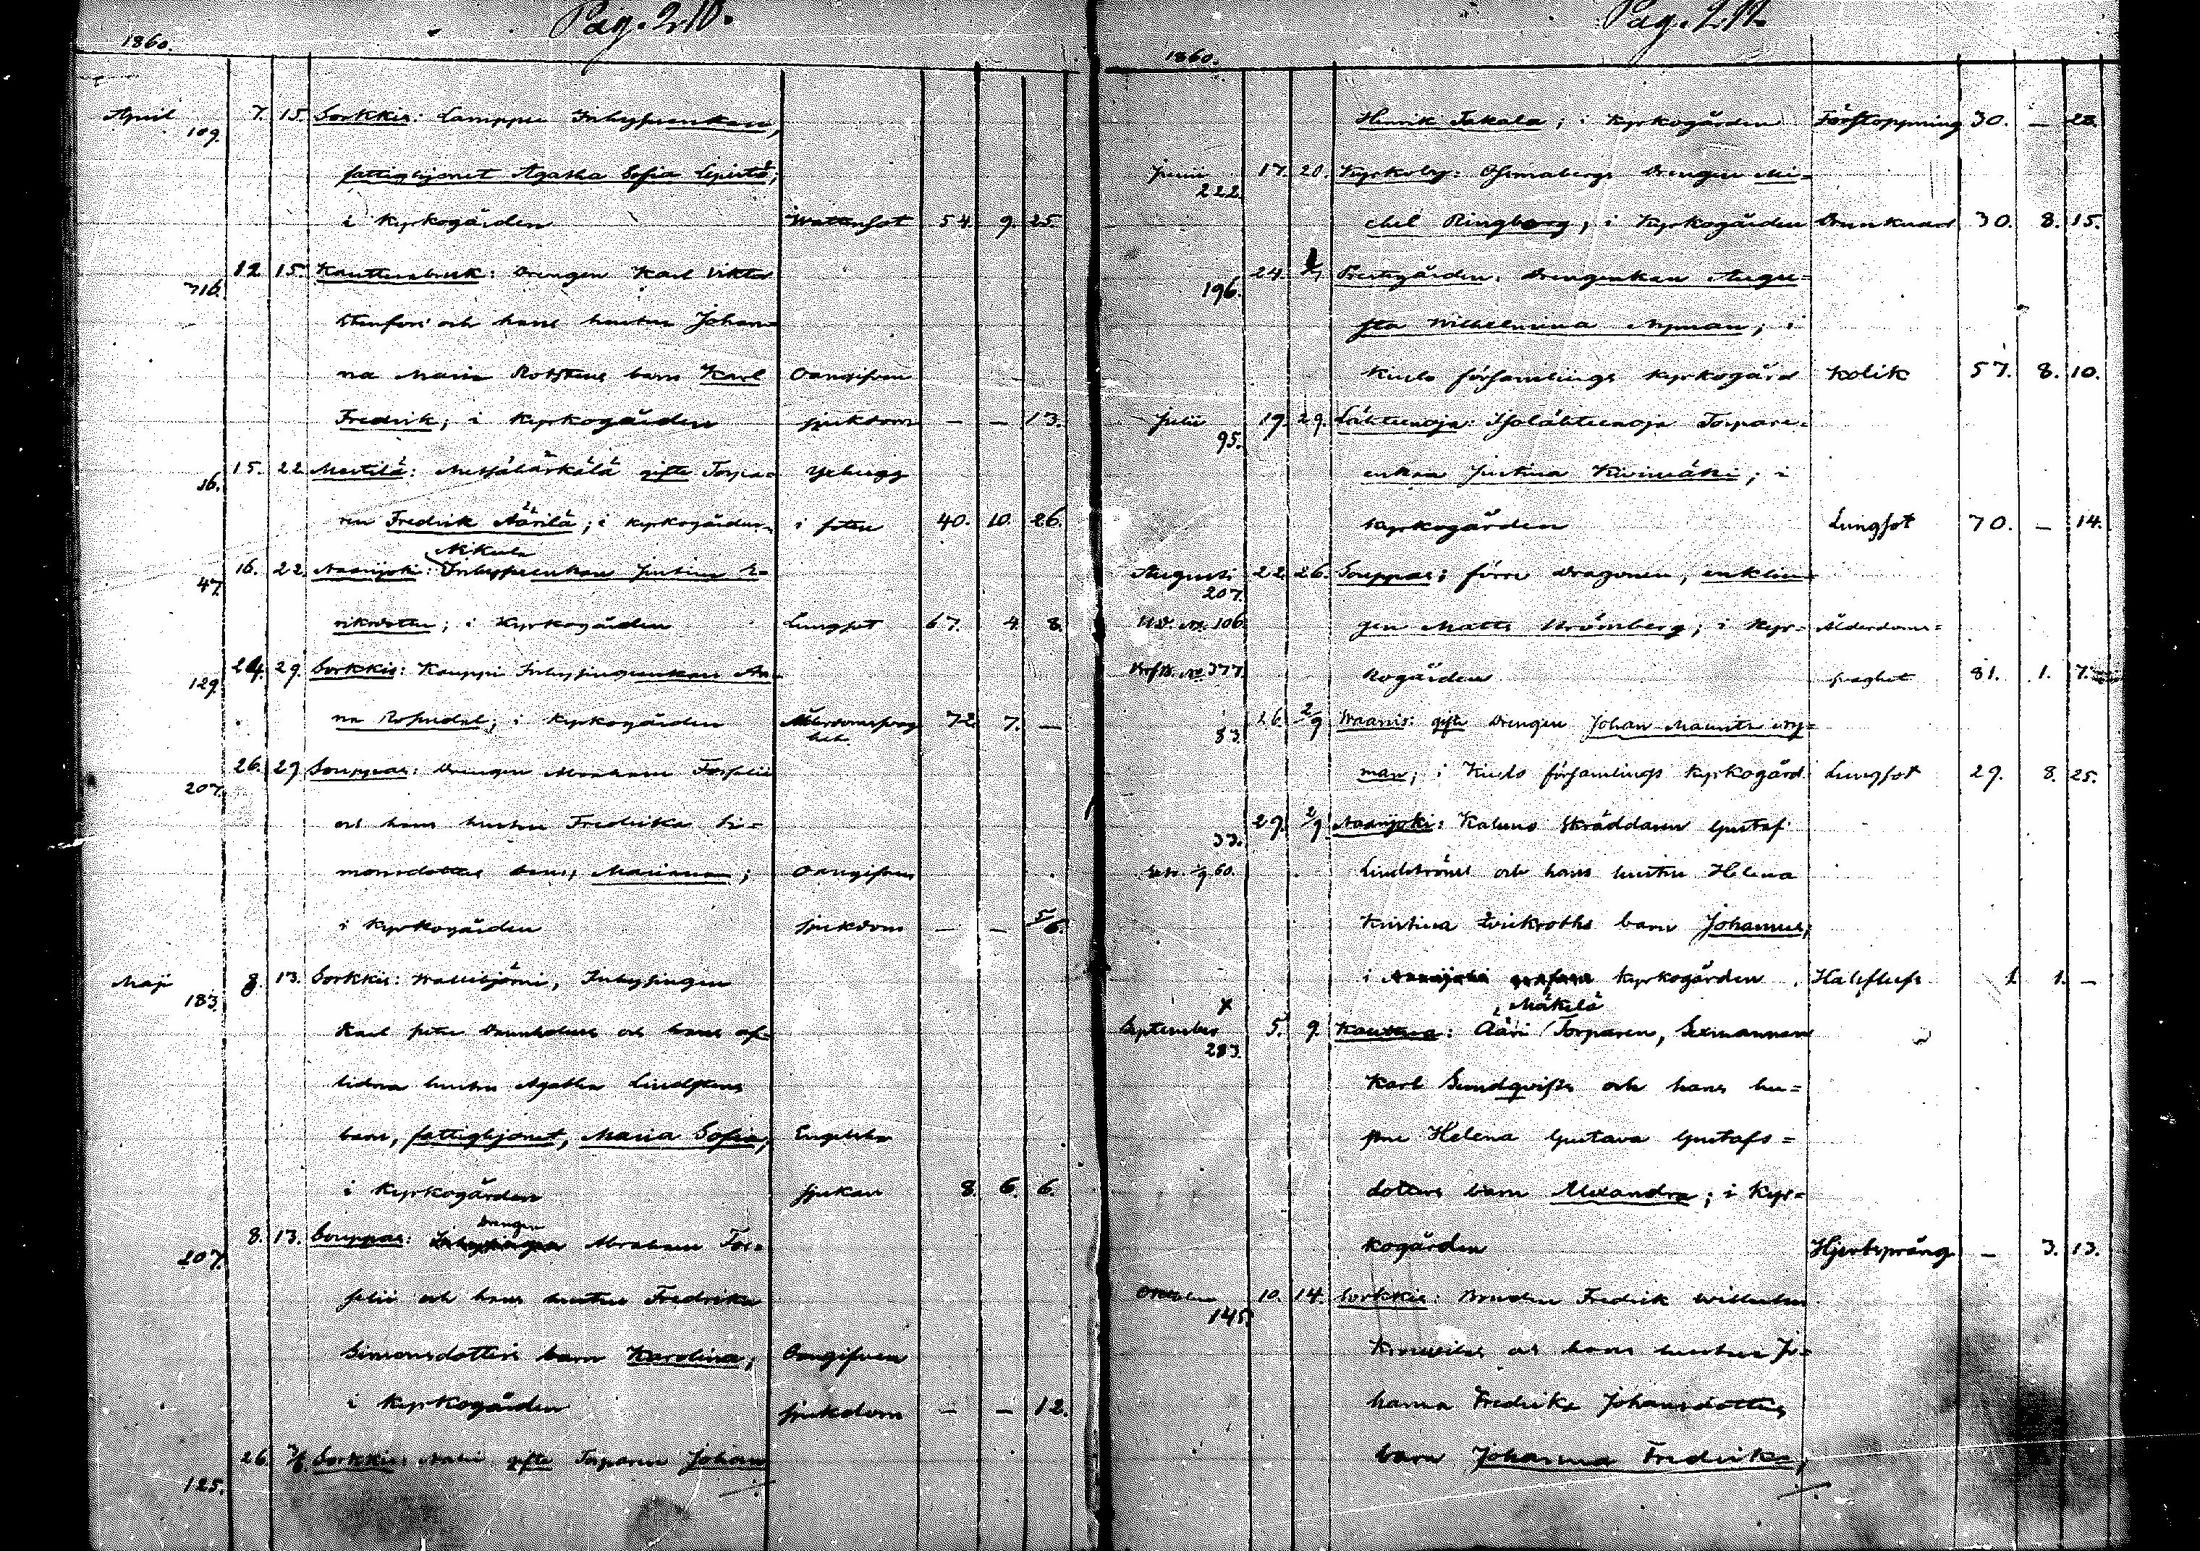 Pag. 210.
1860.
April 109. 7. 15. Sorkkis: Lamppu Inhysesenkan,
fattighjonet Agatha Sofia Lepistö;
i kyrkogården Wattensot 54. 9. 25.
716. 12 15. Kauttuabruk: Drengen Karl Viktor
Stenfors' och hans hustru Johan-
na Maria barn Karl Oangifven
Fredrik; i kyrkogården sjukdom — — 13.
16. 15. 22. Mestilä: gifte Torpa-
ren Fredrik Äärilä; i kyrkogården i foten 40. 10. 26.
Mikula
47 16. 22. Naarijoki: Inhysesenkan Justina E-
riksdotter; i kyrkogården Lungsot 67. 4. 8.
129. 24. 29. Sorkkis: Kauppi Inhysingsenkan An-
na Rosendal; i kyrkogården Ålderdomssvag 72 7. —
het.
207. 26. 29 Souppas: Drengen Abraham Forselii
och hans hustru Fredrika Si-
monsdotters barn, Mariana; Oangifven
i kyrkogården sjukdom — — 5/6.
Maji 183. 8. 13. Sorkkis: Wallibjörni, Inhysingen
Karl och hans af-
lidna hustru Agatha Lindstens
barn, fattighjonet, Maria Sofia, Engelska
i kyrkogården sjukan 8. 6. 6.
Drengen
207. 8. 13. Souppas: Abraham For-
selii och hans hustru Fredrika
Simonsdotters barn Karolina; Oangifven
i kyrkogården sjukdom — — 12.
125. 26. 3/6 Sorkkis: gifte Torparen Johan
Pag. 211.
1860.
Henrik Takala; i kyrkogården Förstoppning 30. — 28.
Junii 222. 17. 20. Kyrkoby: Drengen Mi-
chel Ringberg; i Kyrkogården 30. 8. 15.
196. 24. 1/7 Prestgården: Drengenkan Augu-
sta Wilhelmina Nyman; i
Kiulo församlings kyrkogård Kolik 57. 8. 10.
Julii 95. 19. 29. Lähteenoja: Isolähteenoja Torpare-
enkan Justina Kivimäki; i
kyrkogården Lungsot 70. — 14.
Augusti 207. 22. 26. Souppas: förre Dragonen, enklin-
Utd. No. 106 gen Matts Strömberg; i kyr- Ålderdoms-
No 377. kogården svaghet 81. 1. 7.
53. 26. 2/9 Waanis: gifte Drengen Johan Mauritz Ny-
man; i Kiulo församlings kyrkogård. Lungsot 29. 8. 25.
33. 29. 2/9 Naarijoki: Skräddaren Gustaf
/9 60. Lindströms och hans hustru Helena
Kristina barn Johannes;
i kyrkogården Halsfluss 1. 1. —
x Mäkelä
September 283. 5. 9. Kauttua: Ääri Torparen, Sexmannen
Karl Sundqvists och hans hu-
stru Helena Gustava Gustafs-
dotters barn Alexandra; i kyr-
kogården Hjertsprång — 3. 13.
October 145. 10. 14. Sorkkis: Bonden Fredrik Wilhelm
och hans hustru Jo-
hanna Fredrika Johansdotters
barn Johanna Fredrika,